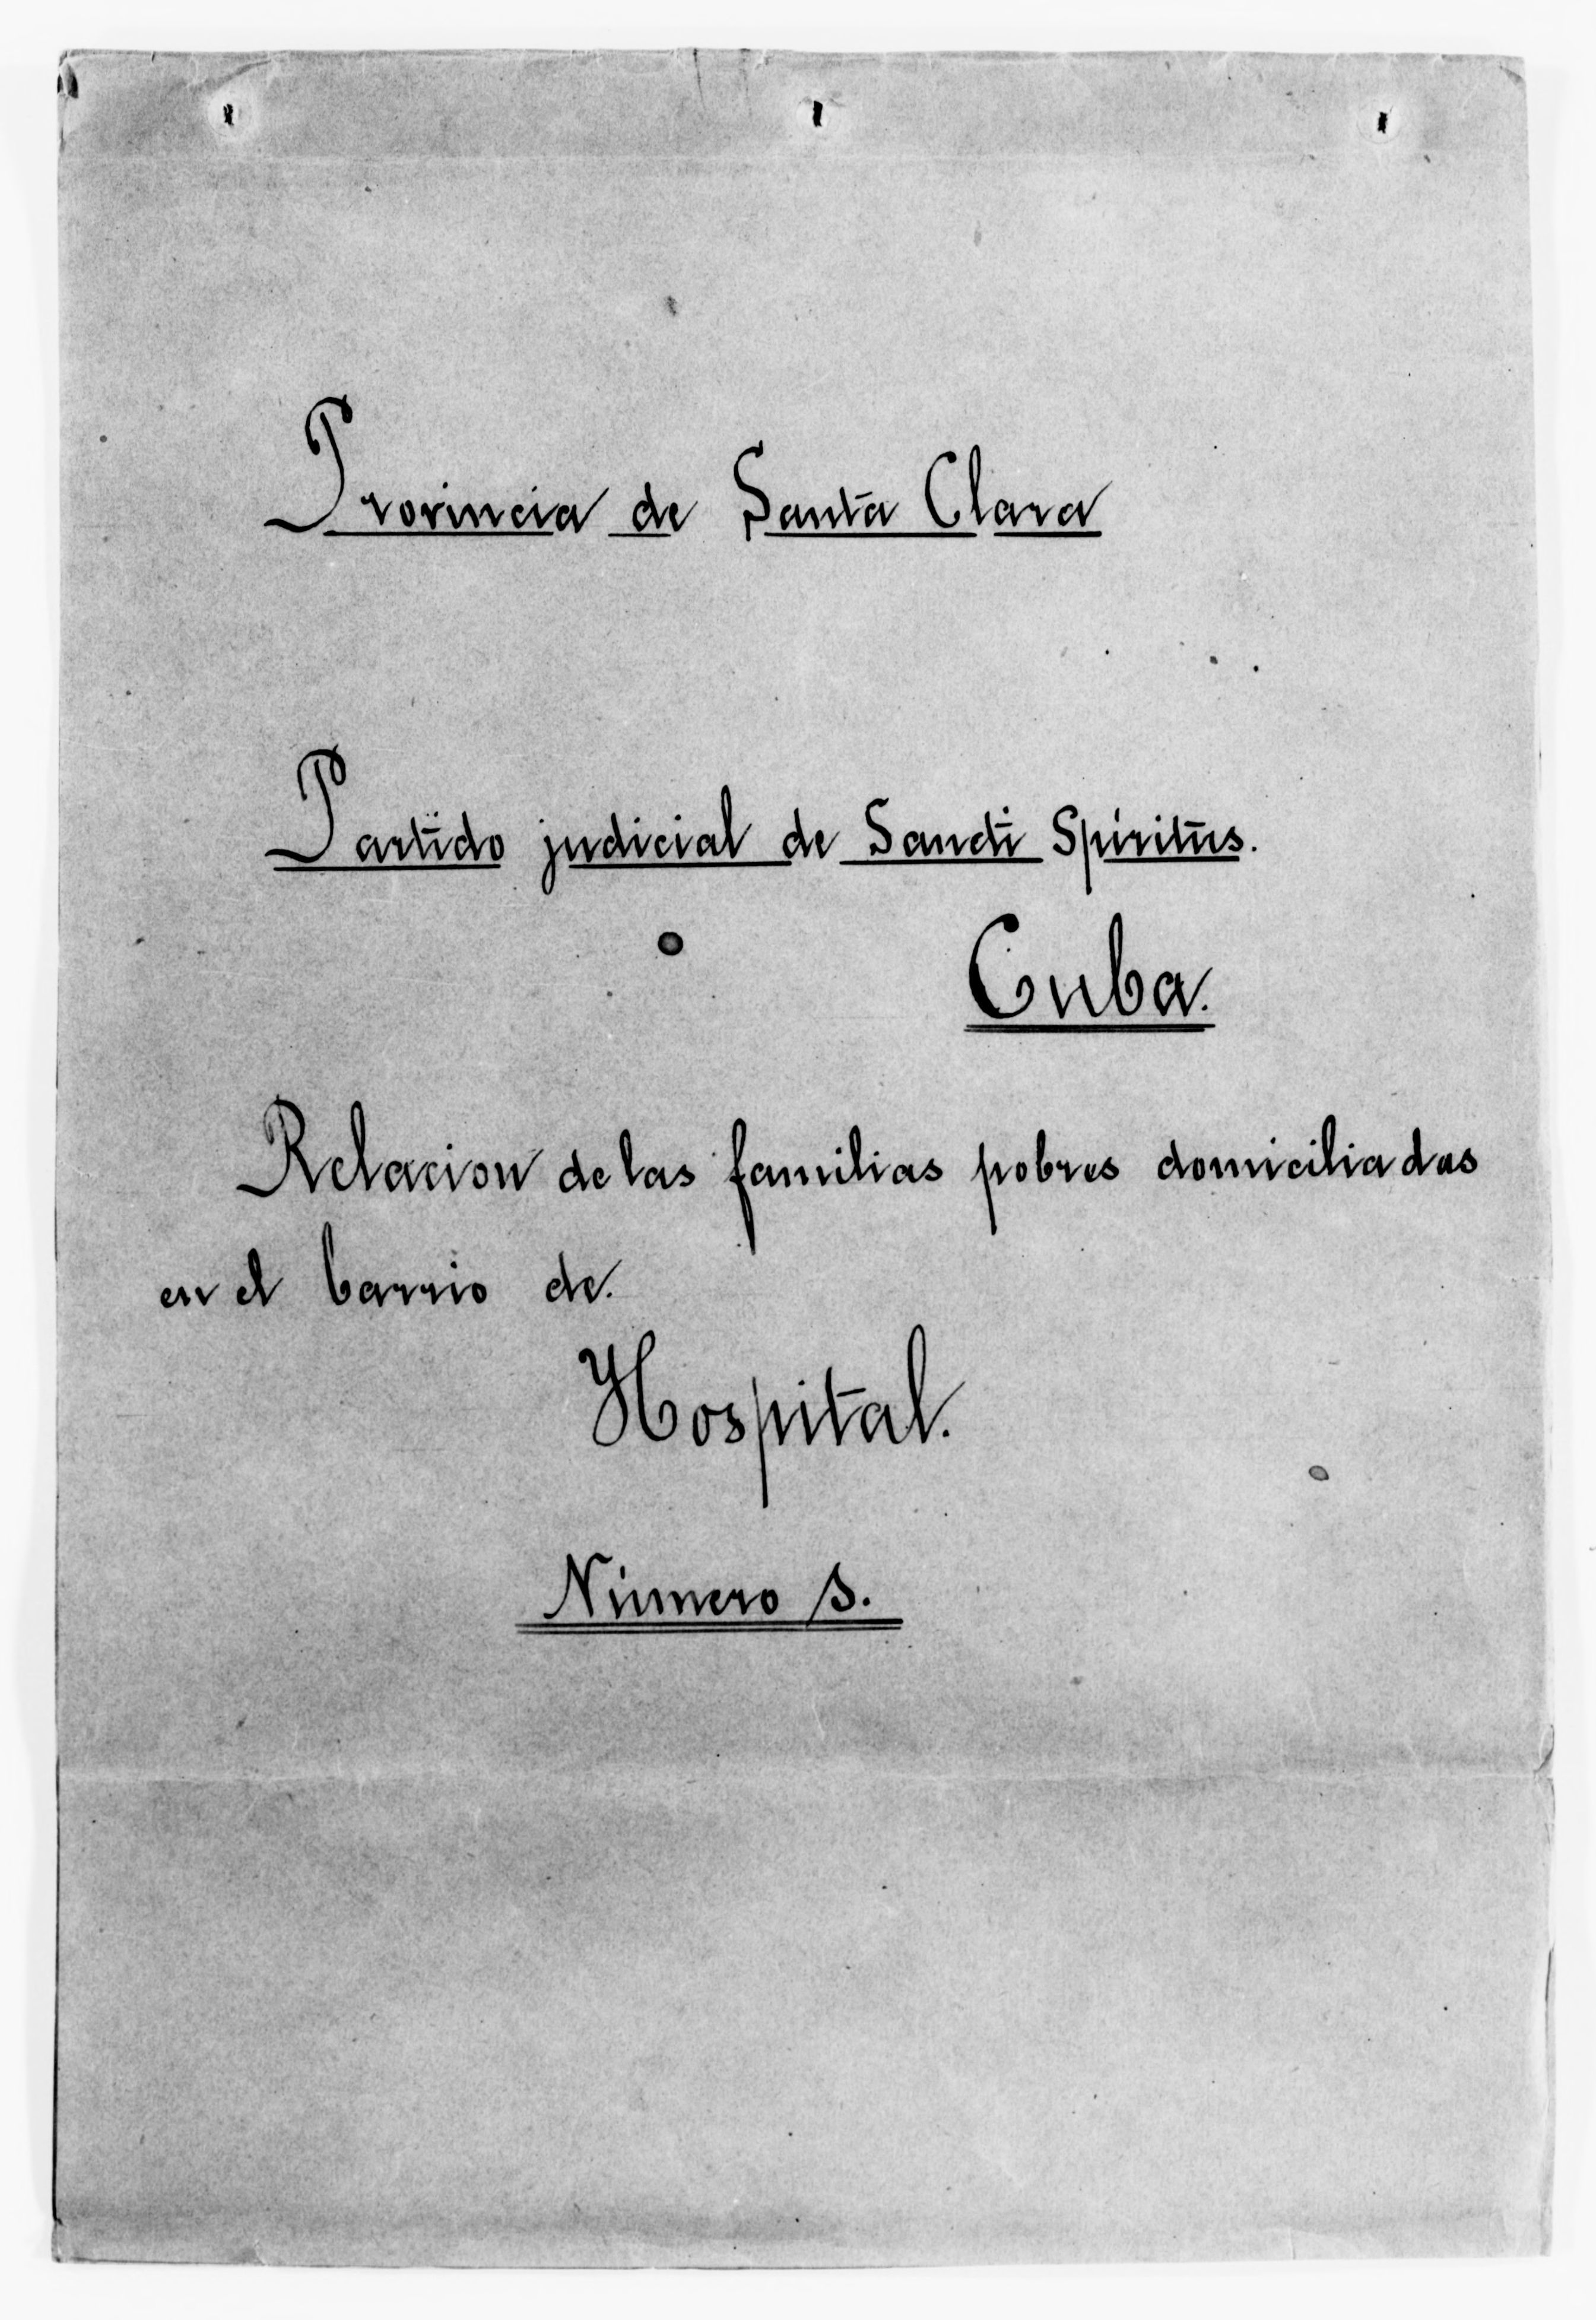 Provincia de Santa Clara
Partido judicial de Sancti Spiritus.
Cuba.
Relacion de las familias pobres domiciliadas
en el barrio de.
Hospital.
Número